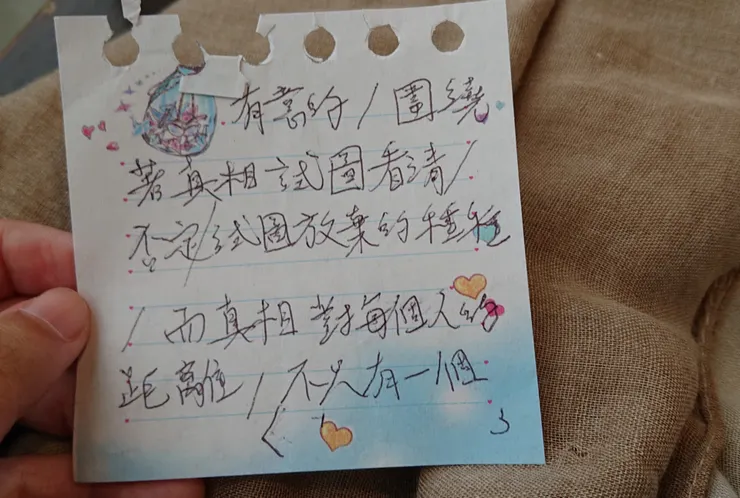 有意的/圍繞
著真相試圖看清/
否定/試圖放棄的種種
/而真相對每個人的
距離/不只有一個
3